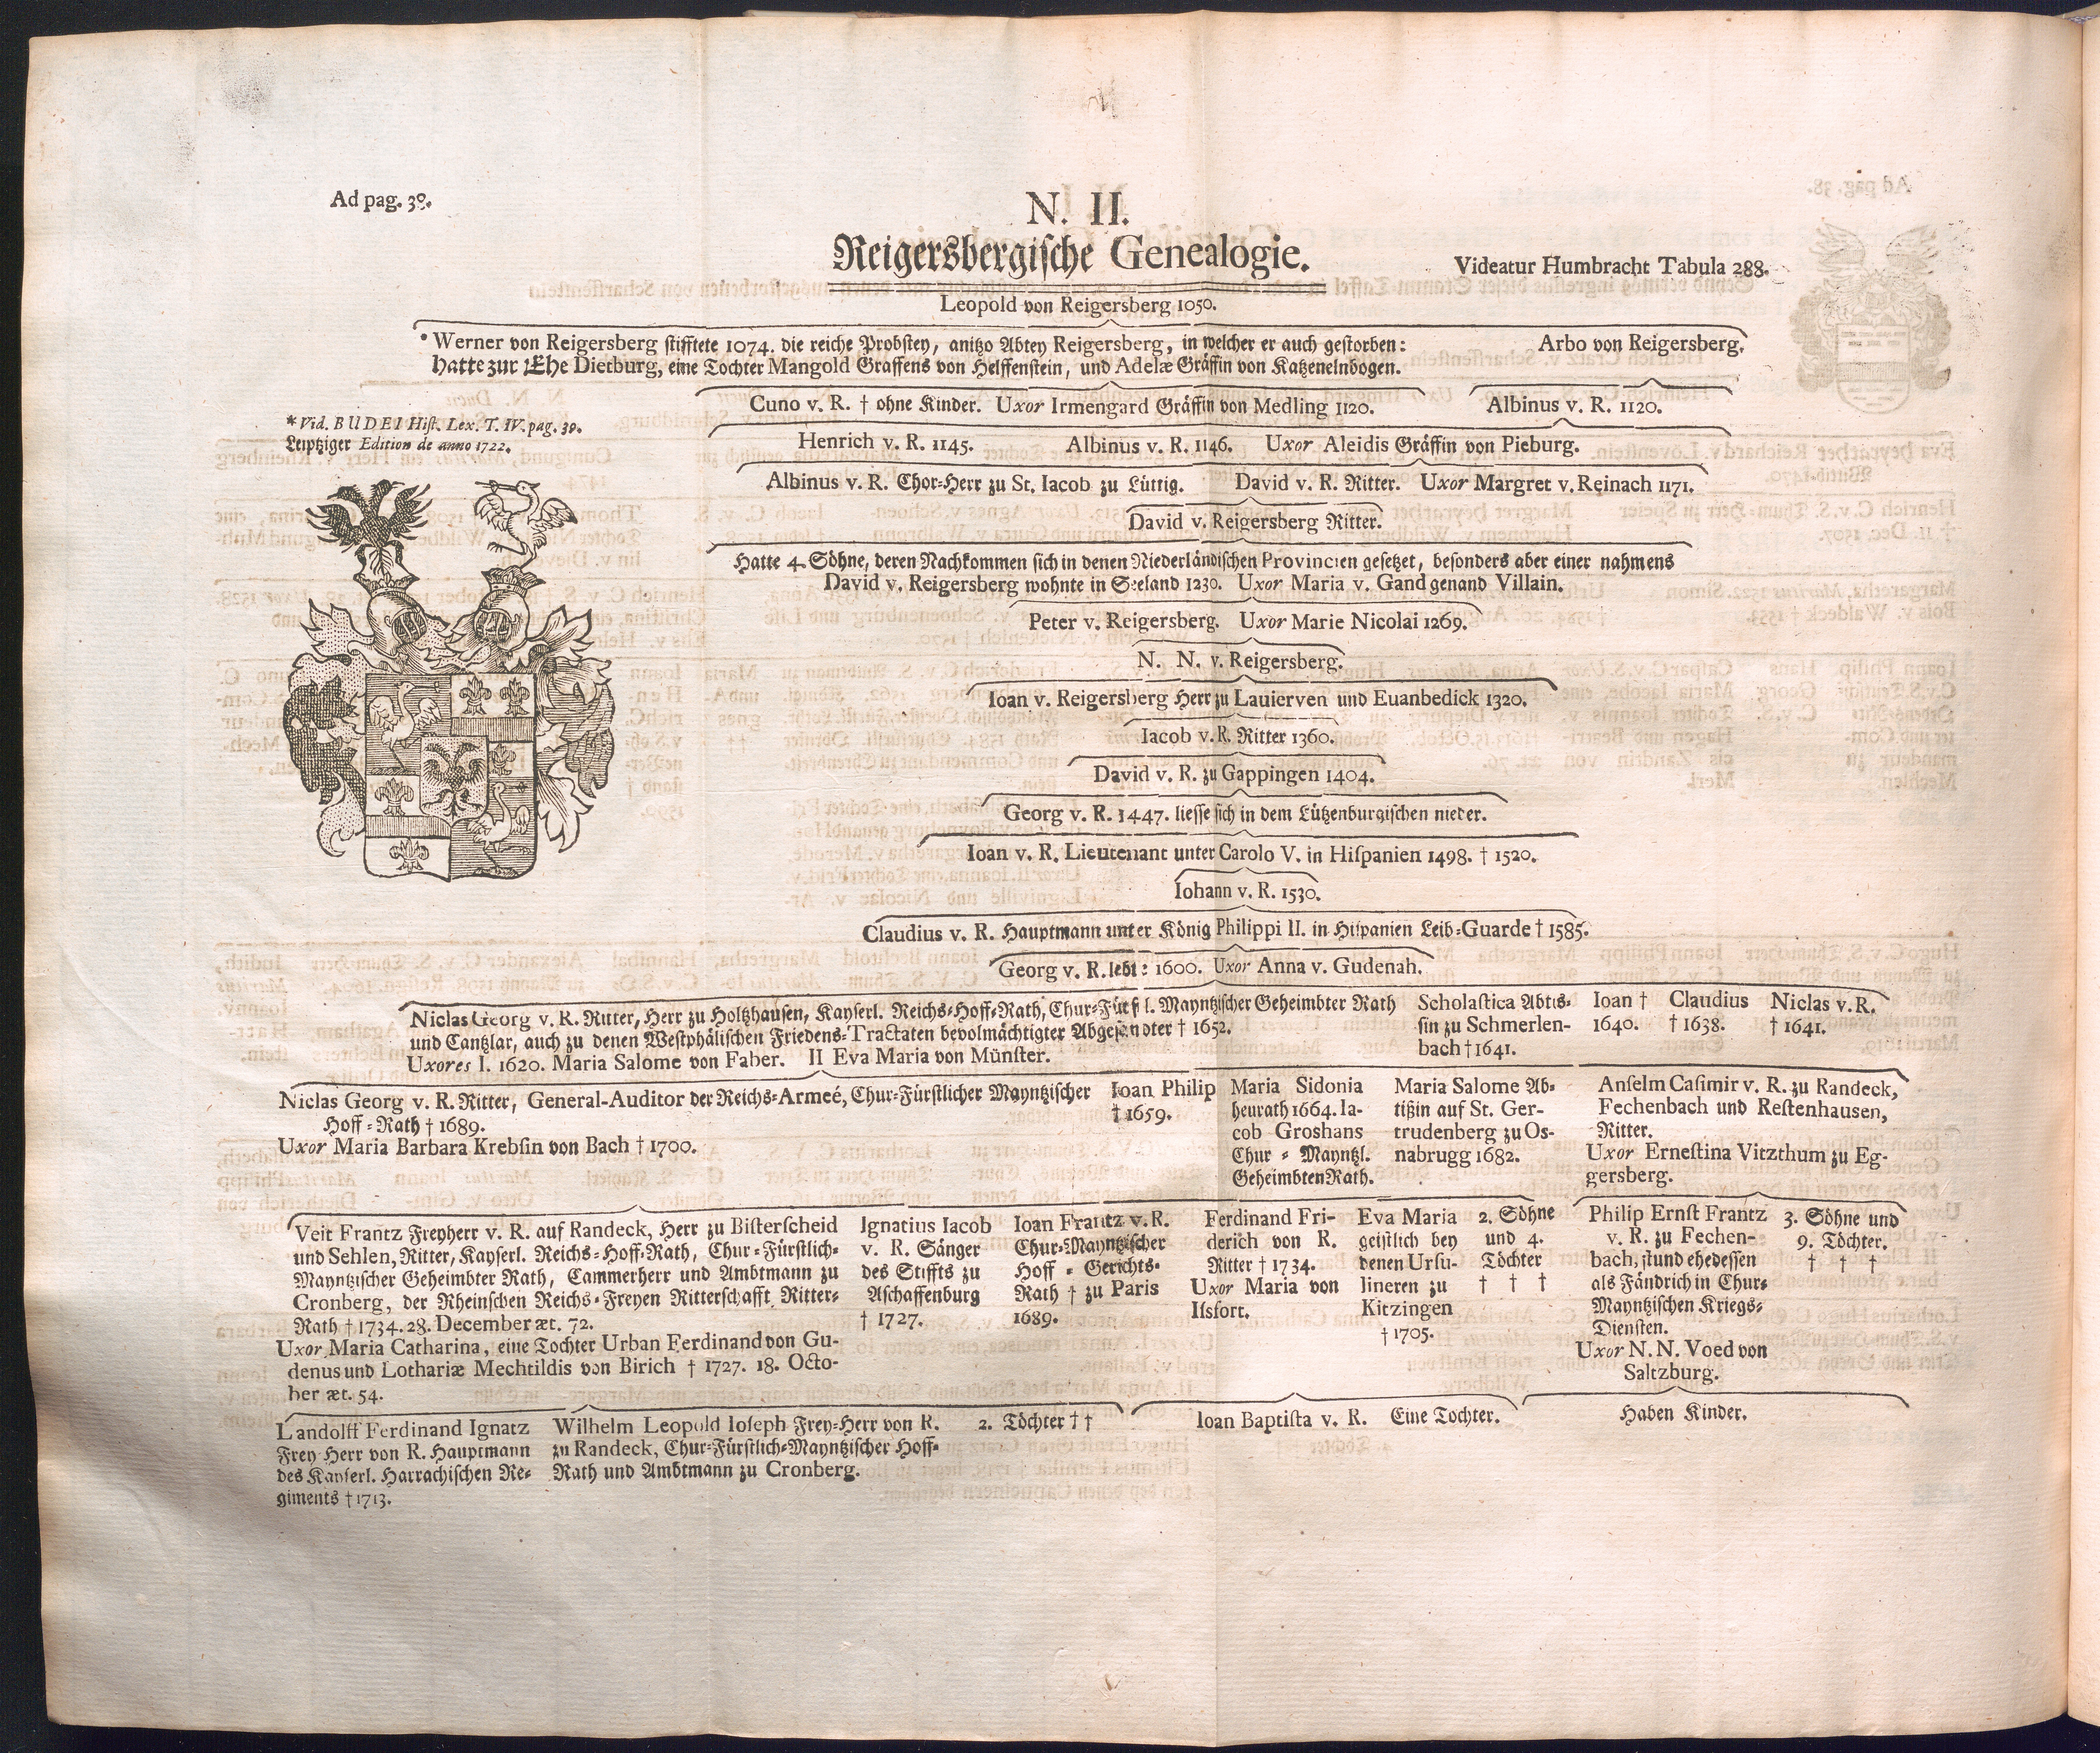 Ad pag. 38.
N. II.
Reigersbergische Genealogie.
Videatur Humbracht Tabula 288.
Leopold von Reigersberg 1050.
* Werner von Reigersberg stifftete 1074. die reiche Probstey, anitzo Abtey Reigersberg, in welcher er auch gestorben:
hatte zur Ehe Dietburg, eine Tochter Mangold Graffens von Helffenstein, und Adelæ Gräffin von Katzenelnbogen.
Arbo von Reigersberg.
Cuno v. R. † ohne Kinder. Uxor Irmengard Gräffin von Medling 1120.
Albinus v. R. 1120.
* Vid. BUDEI Hist. Lex. T. IV. pag. 30.
Leiptziger Edition de anno 1722.
Henrich v. R. 1145. Albinus v. R. 1146. Uxor Aleidis Gräffin von Pieburg.
Albinus v. R. Chor=Herr zu St. Iacob zu Lüttig. David v. R. Ritter. Uxor Margret v. Reinach 1171.
David v. Reigersberg Ritter.
Hatte 4. Söhne, deren Nachkommen sich in denen Niederländischen Provincien gesetzet, besonders aber einer nahmens
David v. Reigersberg wohnte in Seeland 1230. Uxor Maria v. Gand genand Villain.
Peter v. Reigersberg. Uxor Marie Nicolai 1269.
N. N. v. Reigersberg.
Ioan v. Reigersberg Herr zu Lauierven und Euanbedick 1320.
Iacob v. R. Ritter 1360.
David v. R. zu Gappingen 1404.
Georg v. R. 1447. liesse sich in dem Lützenburgischen nieder.
Ioan v. R. Lieutenant unter Carolo V. in Hispanien 1498. † 1520.
Iohann v. R. 1530.
Claudius v. R. Hauptmann unter König Philippi II. in Hispanien Leib=Guarde † 1585.
Georg v. R. lebt: 1600. Uxor Anna v. Gudenah.
Niclas Georg v. R. Ritter, Herr zu Holtzhausen, Kayserl. Reichs=Hoff=Rath, Chur=Fürstl. Mayntzischer Geheimbter Rath
und Cantzlar, auch zu denen Westphälischen Friedens=Tractaten bevolmächtigter Abgesandter † 1652.
Uxores I. 1620. Maria Salome von Faber. II Eva Maria von Münster.
Scholastica Abtis=
sin zu Schmerlen-
bach † 1641.
Ioan †
1640.
Claudius
† 1638.
Niclas v. R.
† 1641.
Niclas Georg v. R. Ritter, General-Auditor der Reichs=Armeé, Chur=Fürstlicher Mayntzischer
Hoff=Rath † 1689.
Uxor Maria Barbara Krebsin von Bach † 1700.
Ioan Philip
† 1659.
Maria Sidonia
heurath 1664. Ia-
cob Groshans
Chur=Mayntzl.
Geheimbten Rath.
Maria Salome Ab=
tißin auf St. Ger-
trudenberg zu Os-
nabrugg 1682.
Anselm Casimir v. R. zu Randeck,
Fechenbach und Restenhausen,
Ritter.
Uxor Ernestina Vitzthum zu Eg-
gersberg.
Veit Frantz Freyherr v. R. auf Randeck, Herr zu Bisterscheid
und Sehlen, Ritter, Kayserl. Reichs=Hoff=Rath, Chur=Fürstlich=
Mayntzischer Geheimbter Rath, Cammerherr und Ambtmann zu
Cronberg, der Rheinschen Reichs=Freyen Ritterschafft Ritter=
Rath † 1734. 28. December æt. 72.
Uxor Maria Catharina, eine Tochter Urban Ferdinand von Gu-
denus und Lothariæ Mechtildis von Birich † 1727. 18. Octo-
ber æt. 54.
Ignatius Iacob
v. R. Sänger
des Stiffts zu
Aschaffenburg
† 1727.
Ioan Frantz v. R.
Chur=Mayntzischer
Hoff=Gerichts=
Rath † zu Paris
1689.
Ferdinand Fri-
derich von R.
Ritter † 1734.
Uxor Maria von
Ilsfort.
Eva Maria
geistlich bey
denen Ursu-
lineren zu
Kitzingen
† 1705.
2. Söhne
und 4.
Töchter
† † †
Philip Ernst Frantz
v. R. zu Fechen-
bach, stund ehedessen
als Fändrich in Chur=
Mayntzischen Kriegs=
Diensten.
Uxor N. N. Voed von
Saltzburg.
3. Söhne und
9. Töchter.
† † †
Landolff Ferdinand Ignatz
Frey Herr von R. Hauptmann
des Kayserl. Harrachischen Re=
giments † 1713.
Wilhelm Leopold Ioseph Frey=Herr von R.
zu Randeck, Chur=Fürstlich=Mayntzischer Hoff=
Rath und Ambtmann zu Cronberg.
2. Töchter † †
Ioan Baptista v. R. Eine Tochter.
Haben Kinder.